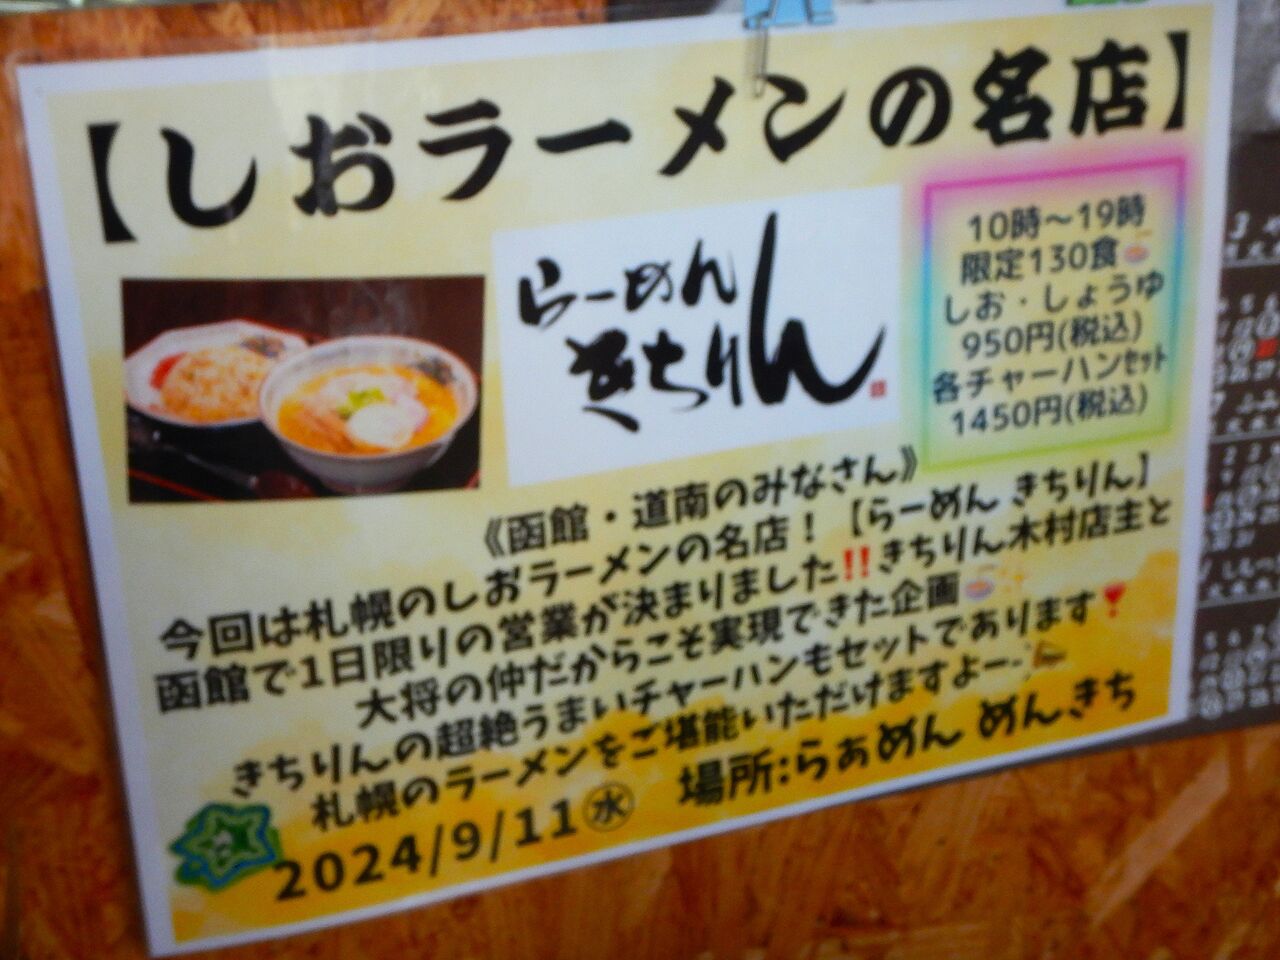 【しおラーメンの名店】
らーめん
きちりん
10時～19時
限定130食🍜
しお・しょうゆ
950円(税込)
各チャーハンセット
1450円(税込)
《函館・道南のみなさん》
今回は札幌のしおラーメンの名店！【らーめん きちりん】
函館で1日限りの営業が決まりました‼️きちりん木村店主と
大将の仲だからこそ実現できた企画🍜✨
きちりんの超絶うまいチャーハンもセットであります❣️
札幌のラーメンをご堪能いただけますよー
2024/9/11㊌ 場所:らぁめん めんきち